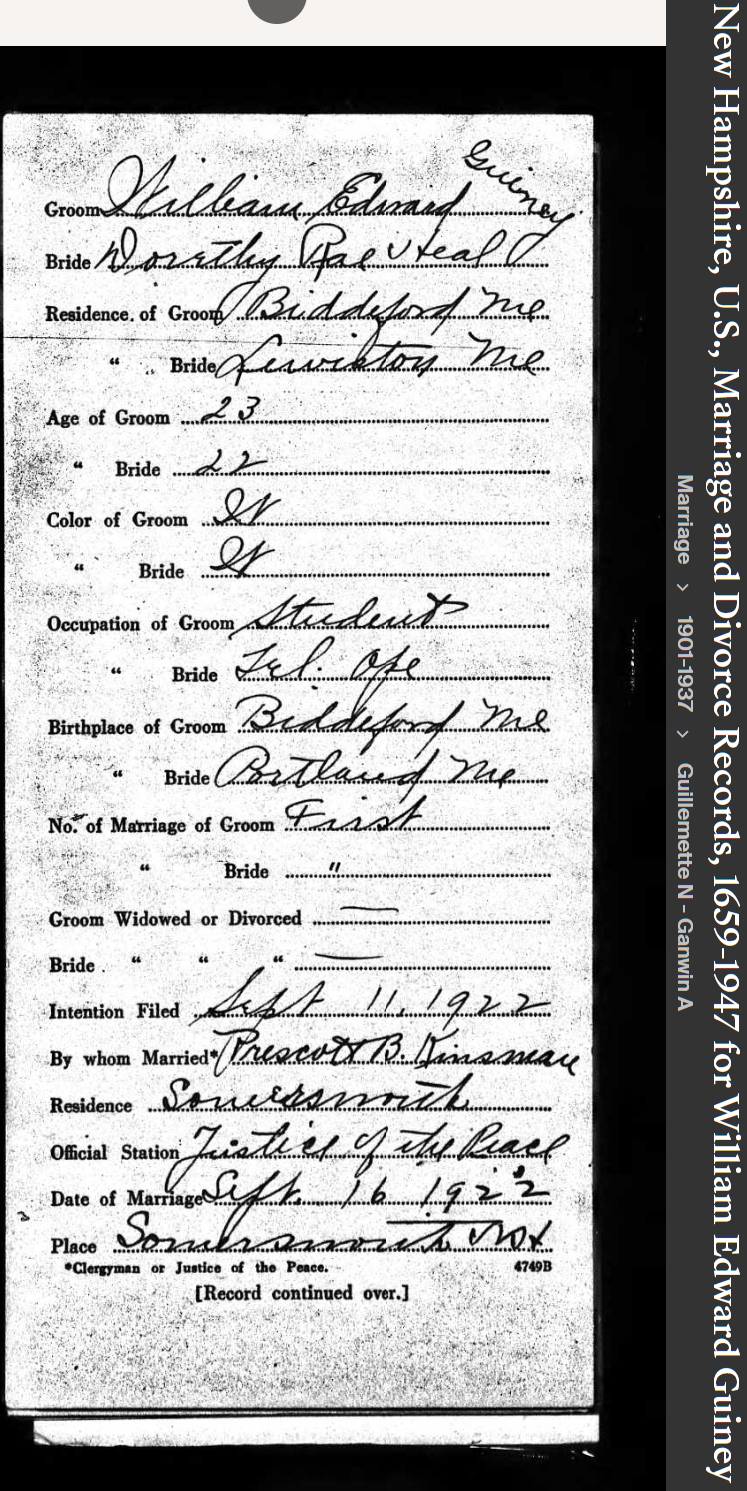 Guiney
Groom William Edward
Bride Dorothy Rae Heal
Residence. of Groom Biddeford Me
“ „ Bride Lewiston Me
Age of Groom 23
“ Bride 22
Color of Groom W
“ Bride W
Occupation of Groom Student
“ Bride Tel. Ope
Birthplace of Groom Biddeford Me
“ Bride Portland Me
No. of Marriage of Groom First
“ Bride "
Groom Widowed or Divorced —
Bride “ “ “ —
Intention Filed Sept 11, 1922
By whom Married* Prescott B. Kinsman
Residence Somersworth
Official Station Justice of the Peace
Date of Marriage Sept. 16 1922
Place Somersworth NH
*Clergyman or Justice of the Peace. 4749B
[Record continued over.]
New Hampshire, U.S., Marriage and Divorce Records, 1659-1947 for William Edward Guiney
Marriage > 1901-1937 > Guillemette N - Ganwin A